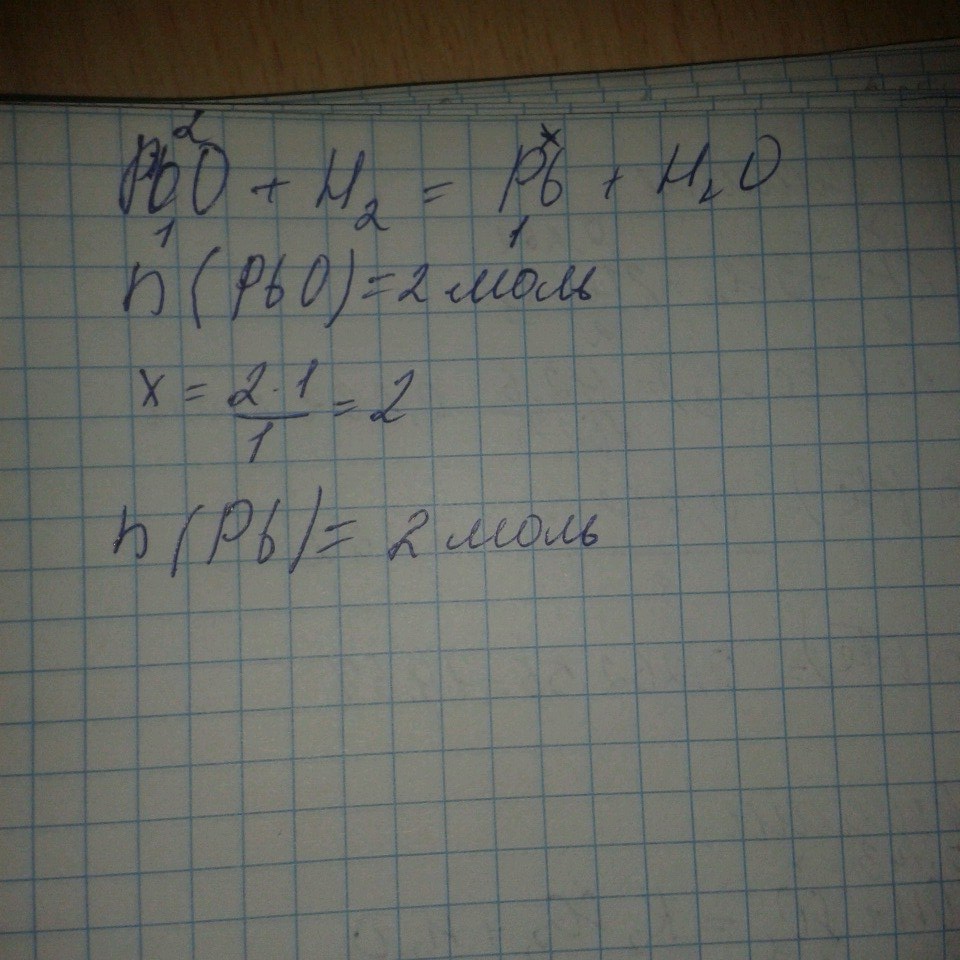 2 x
PbO + H₂ = Pb + H₂O
1 1
n (PbO) = 2 моль
x = 2·1/1 = 2
n (Pb) = 2 моль